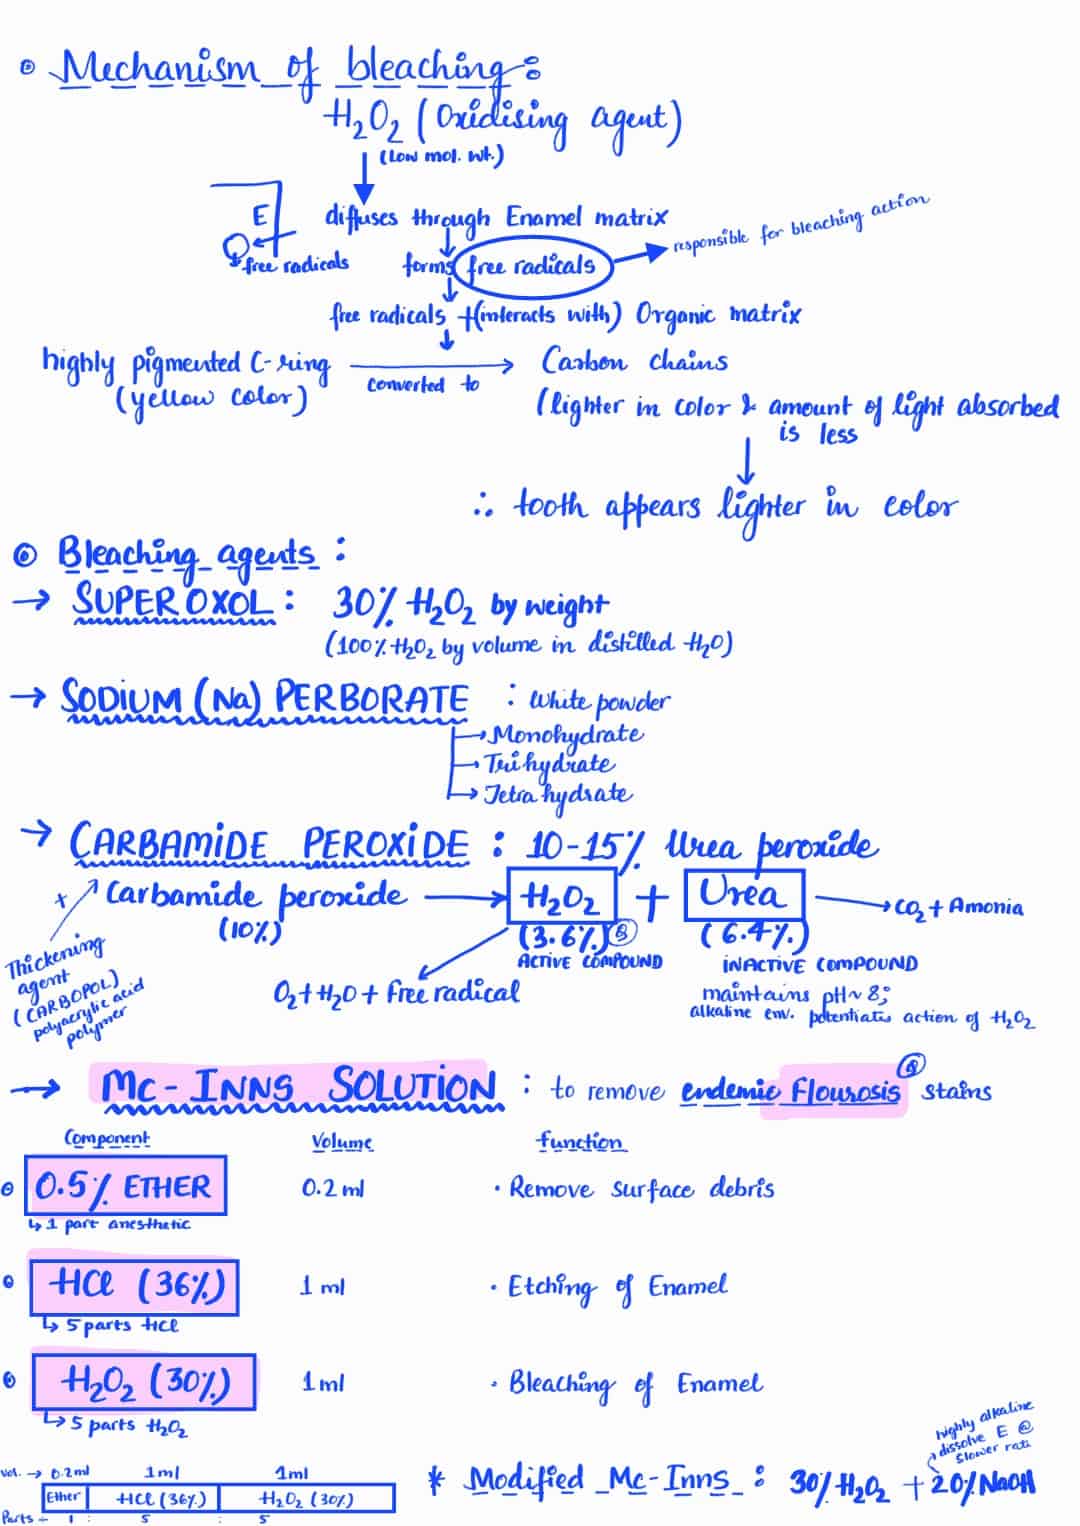 Mechanism of bleaching :
H2O2 (Oxidising agent)
(Low mol. wt.)
diffuses through Enamel matrix
E
free radicals
forms free radicals
responsible for bleaching action
free radicals + (interacts with) Organic matrix
highly pigmented C-ring converted to Carbon chains
(yellow color)
(lighter in color & amount of light absorbed is less
∴ tooth appears lighter in color
Bleaching agents :
→ SUPEROXOL : 30% H2O2 by weight
(100% H2O2 by volume in distilled H2O)
→ SODIUM (Na) PERBORATE : White powder
→ Monohydrate
→ Trihydrate
→ Tetrahydrate
→ CARBAMIDE PEROXIDE : 10-15% Urea peroxide
+ Carbamide peroxide → H2O2 + Urea → CO2 + Amonia
(10%) (3.6%) (6.4%)
ACTIVE COMPOUND INACTIVE COMPOUND
Thickening agent
(CARBOPOL)
polyacrylic acid
polymer
O2 + H2O + Free radical
maintains pH ~ 8;
alkaline env. potentiates action of H2O2
→ Mc-INNS SOLUTION : to remove endemic Flourosis stains
Component Volume function
0.5% ETHER 0.2 ml • Remove surface debris
↳ 1 part anesthetic
HCl (36%) 1 ml • Etching of Enamel
↳ 5 parts HCl
H2O2 (30%) 1 ml • Bleaching of Enamel
↳ 5 parts H2O2
Vol. → 0.2 ml 1 ml 1 ml
Ether HCl (36%) H2O2 (30%)
Parts - 1 : 5 : 5
* Modified Mc-Inns : 30% H2O2 + 20% NaOH
highly alkaline
dissolve E @
slower rate